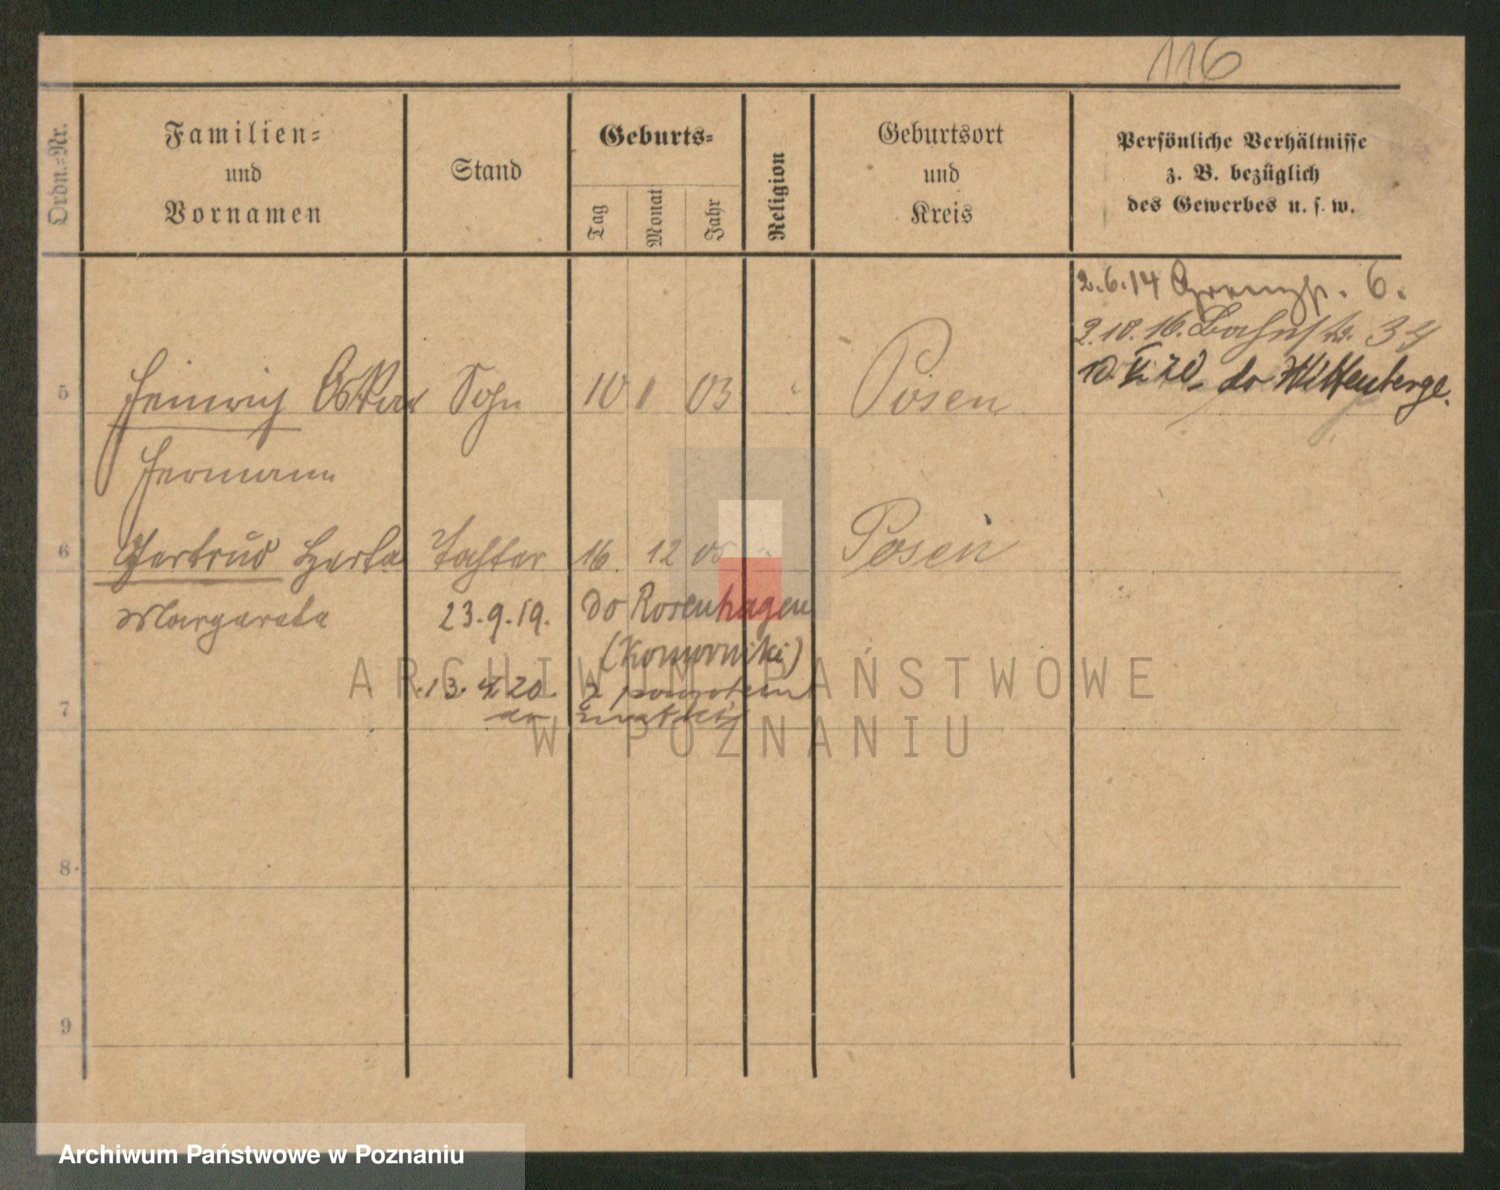 116
Ordn.-Nr.
Familien-
und
Vornamen
Stand
Geburts-
Tag
Monat
Jahr
Religion
Geburtsort
und
Kreis
Persönliche Verhältnisse
z. B. bezüglich
des Gewerbes u. s. w.
2.6.14 6.
2.10.16. Bahnstr. 34
10. VI 20 do Wittenberge.
5 Heinrich Oskar Sohn 10 1 03 Posen
Hermann
6 Gertrud Herta Tochter 16. 12 05 Posen
Margareta 23.9.19. Do Rosenhagen
(Komorniki)
13. 20. z powrotem
7 do
8
9
ARCHIWUM PAŃSTWOWE
W POZNANIU
Archiwum Państwowe w Poznaniu